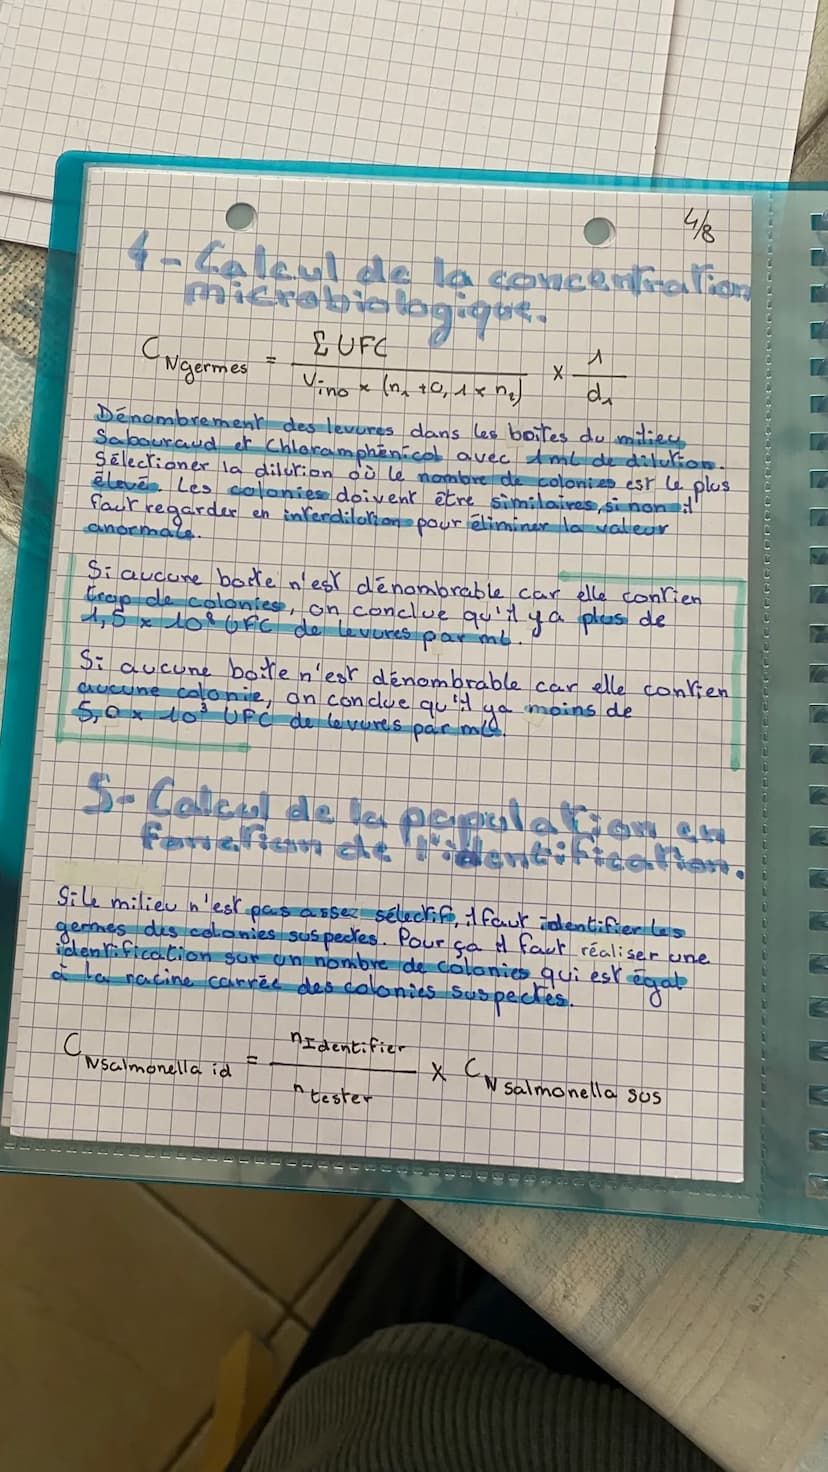 4/8
4- Calcul de la concentration
microbiologique.
C Ngermes = Σ UFC / Vino x (n1 + 0,1 x n2) x 1 / d1
Dénombrement des levures dans les boîtes du milieu
Sabouraud et Chloramphénicol avec 1mL de dilution.
Sélectioner la dilution où le nombre de colonies est le plus
élevé. Les colonies doivent être similaires, si non il
faut regarder en interdilution pour éliminer la valeur
anormale.
Si aucune boîte n'est dénombrable car elle contien
trop de colonies, on conclue qu'il y a plus de
1,5 x 10⁸ UFC de levures par mL.
Si aucune boîte n'est dénombrable car elle contien
aucune colonie, on conclue qu'il y a moins de
5,0 x 10³ UFC de levures par mL.
5- Calcul de la population en
fonction de l'identification.
Si le milieu n'est pas assez sélectif, il faut identifier les
germes des colonies suspectes. Pour ça il faut réaliser une
identification sur un nombre de colonies qui est égal
à la racine carrée des colonies suspectes.
C Nsalmonella id = n Identifier / n tester x C N salmonella sus